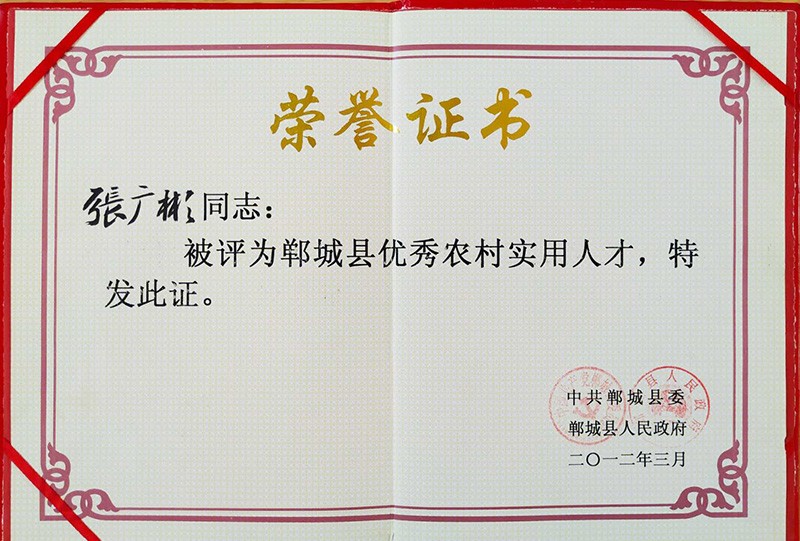 荣誉证书
張广彬同志：
被评为郸城县优秀农村实用人才，特
发此证。
中共郸城县委
郸城县人民政府
二〇一二年三月